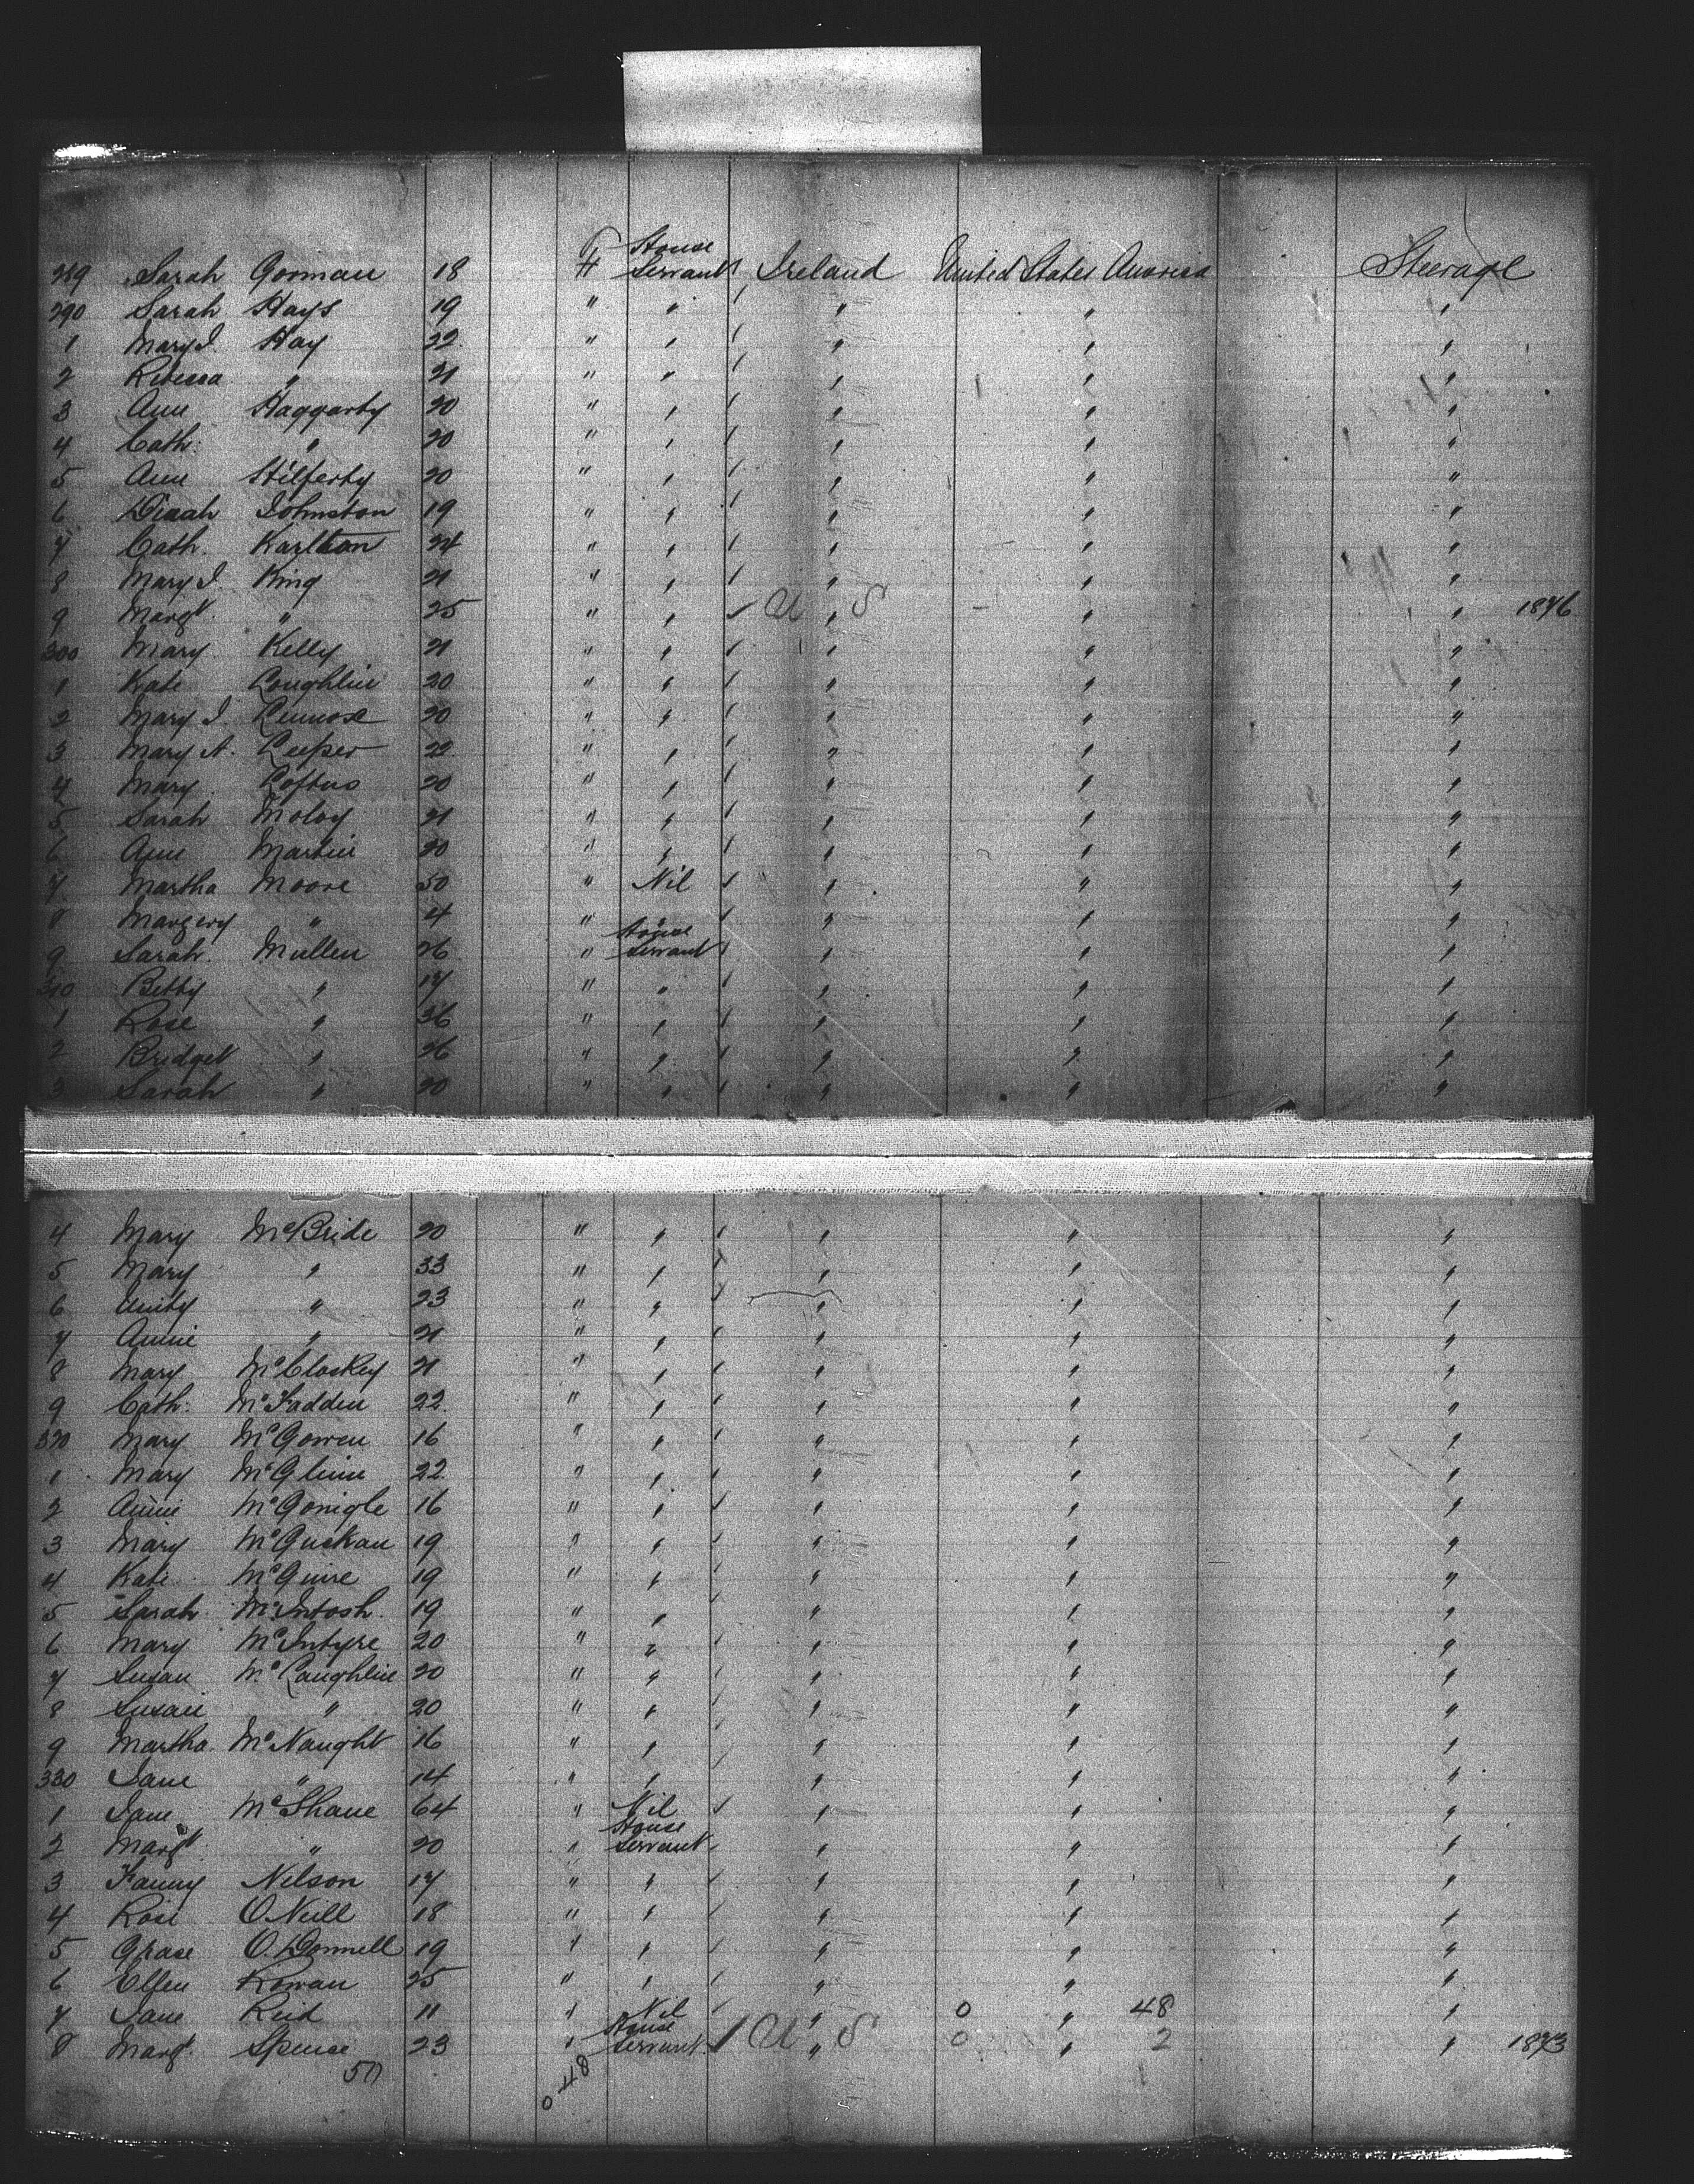 289 Sarah Gorman 18 F House Servant Ireland United States America Steerage
290 Sarah Hays 19 " " " " "
1 Mary J. Hay 22 " " " " "
2 Rebecca " 21 " " " " "
3 Ann Haggarty 20 " " " " "
4 Cath: " 20 " " " " "
5 Ann Hilferty 20 " " " " "
6 Dinah Johnston 19 " " " " "
7 Cath. Karlton 24 " " " " "
8 Mary J. King 21 " " " " "
9 Margt. " 25 " " U " S " " 1876
300 Mary Kelly 21 " " " " "
1 Kate Loughlin 20 " " " " "
2 Mary J. 20 " " " " "
3 Mary A. Leeper 22 " " " " "
4 Mary Loftus 20 " " " " "
5 Sarah Moloy 21 " " " " "
6 Ann Martin 20 " " " " "
7 Martha Moore 50 " Nil " " "
8 Margery " 4 " " " " "
9 Sarah Mullen 26 " House Servant " " "
310 Betty " 17 " " " " "
1 Rose " 36 " " " " "
2 Bridget " 26 " " " " "
3 Sarah " 20 " " " " "
4 Mary McBride 20 " " " " "
5 Mary " 33 " " " " "
6 Unity " 23 " " " " "
7 Annie " 21 " " " " "
8 Mary McCloskey 21 " " " " "
9 Cath: McFadden 22 " " " " "
320 Mary McGowen 16 " " " " "
1 Mary McGlinn 22 " " " " "
2 Annie McGonigle 16 " " " " "
3 Mary McGuskan 19 " " " " "
4 Kate McGuire 19 " " " " "
5 Sarah McIntosh 19 " " " " "
6 Mary McIntyre 20 " " " " "
7 Susan McLaughlin 20 " " " " "
8 Susan " 20 " " " " "
9 Martha McNaught 16 " " " " "
330 Jane " 14 " " " " "
1 Jane McShane 64 " Nil " " "
2 Margt " 20 " House Servant " " "
3 Fanny Nelson 17 " " " " "
4 Rose O'Neill 18 " " " " "
5 Grace O'Donnell 19 " " " " "
6 Ellen Rowan 25 " " " " "
7 Jane Reid 11 " Nil " 0 " 48 "
8 Margt. Spence 23 " House Servant U " S 0 " 2 " 1873
50 0 48